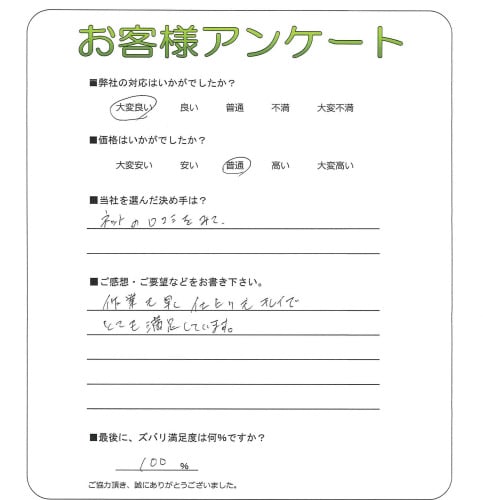 お客様アンケート
■弊社の対応はいかがでしたか?
大変良い 良い 普通 不満 大変不満
■価格はいかがでしたか?
大変安い 安い 普通 高い 大変高い
■当社を選んだ決め手は?
ネットの口コミをみて、
■ご感想・ご要望などをお書き下さい。
作業も早く 仕上りもキレイで
とても満足しています。
■最後に、ズバリ満足度は何%ですか?
100 %
ご協力頂き、誠にありがとうございました。